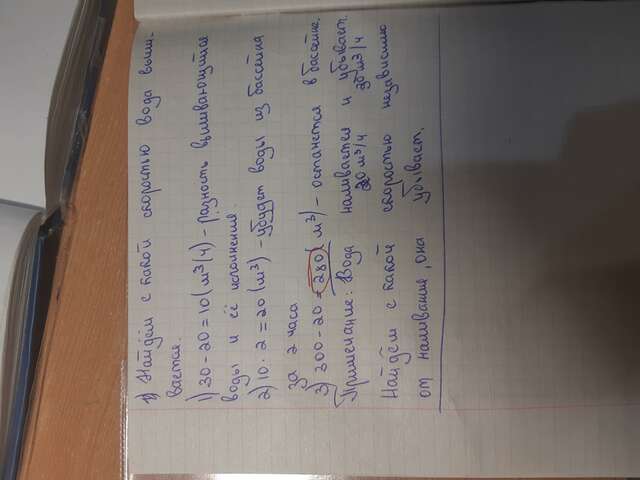 1) Найдём с какой скоростью вода выли-
вается.
1) 30 - 20 = 10 (м³/ч) - разность выливающийся
воды и её наполнения.
2) 10 · 2 = 20 (м³) - убудет воды из бассейна
за 2 часа
3) 300 - 20 = 280 (м³) - останется в бассейне.
Примечание: Вода наливается и убывает.
20 м³/ч 30 м³/ч
Найдём с какой скоростью независимо
от наливание, она убывает.